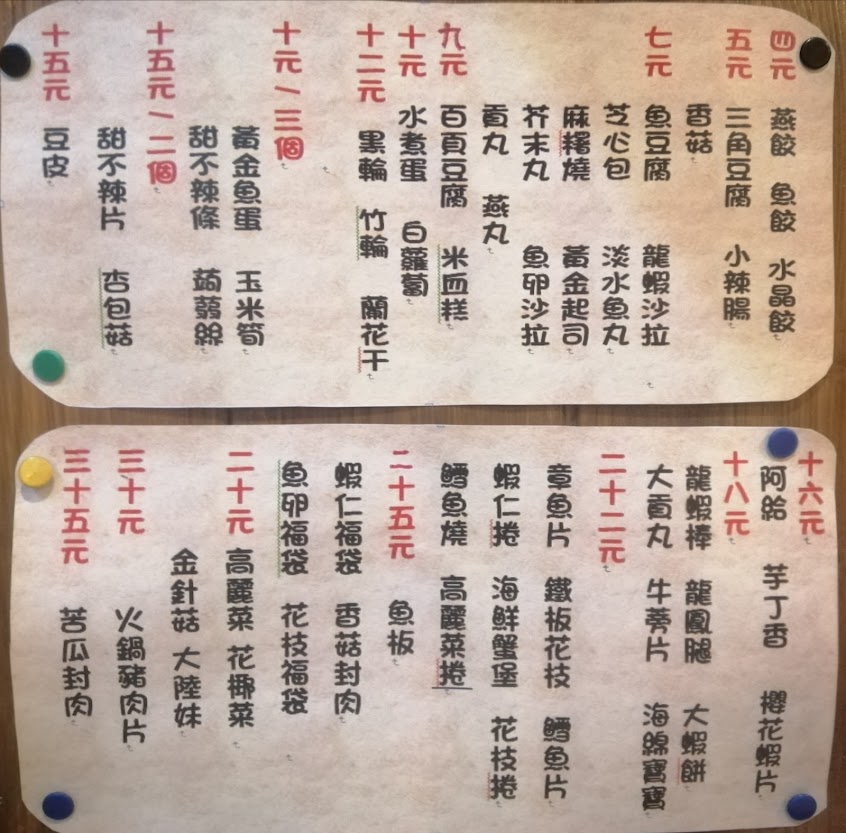 四元 燕餃 魚餃 水晶餃
五元 三角豆腐 小辣腸
香菇
七元 魚豆腐 龍蝦沙拉
芝心包 淡水魚丸
麻糬燒 黃金起司
芥末丸 魚卵沙拉
貢丸 燕丸
九元 百頁豆腐 米血糕
十元 水煮蛋 白蘿蔔
十二元 黑輪 竹輪 蘭花干
十元/三個
黃金魚蛋 玉米筍
甜不辣條 蒟蒻絲
十五元/二個
甜不辣片 杏包菇
十五元 豆皮
十六元
阿給 芋丁香 櫻花蝦片
十八元
龍蝦棒 龍鳳腿 大蝦餅
大貢丸 牛蒡片 海綿寶寶
二十二元
章魚片 鐵板花枝 鱈魚片
蝦仁捲 海鮮蟹堡 花枝捲
鱈魚燒 高麗菜捲
二十五元 魚板
蝦仁福袋 香菇封肉
魚卵福袋 花枝福袋
二十元 高麗菜 花椰菜
金針菇 大陸妹
三十元 火鍋豬肉片
三十五元 苦瓜封肉